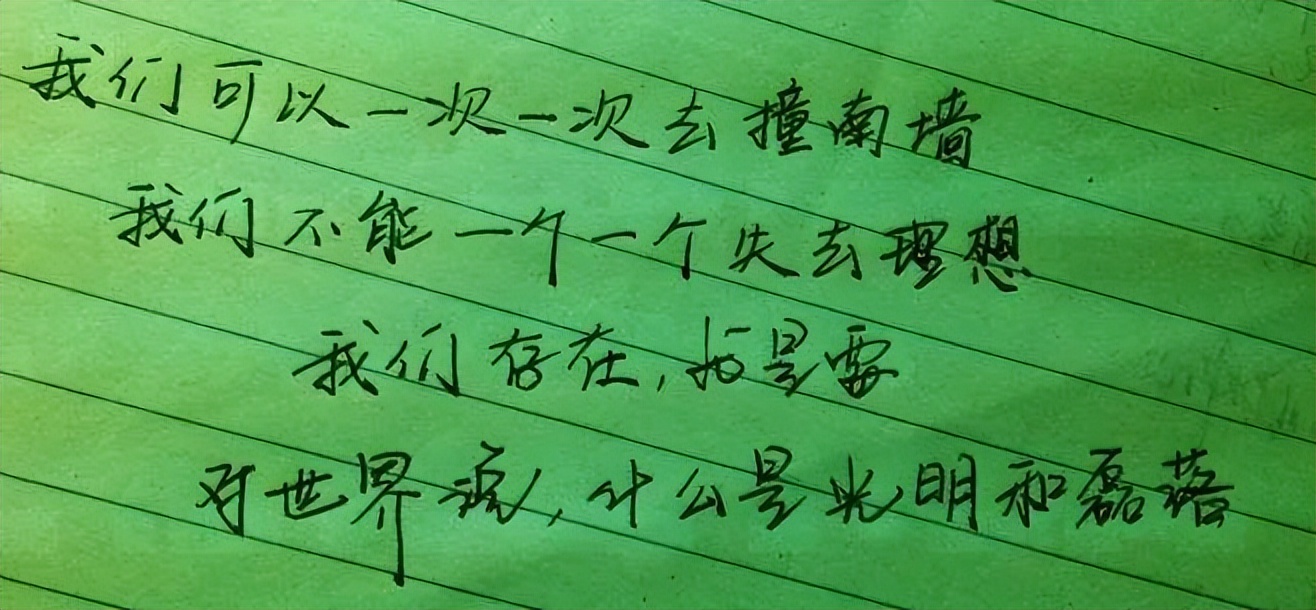 我们可以一次一次去撞南墙
我们不能一个一个失去理想
我们存在,就是要
对世界说,什么是光明和磊落